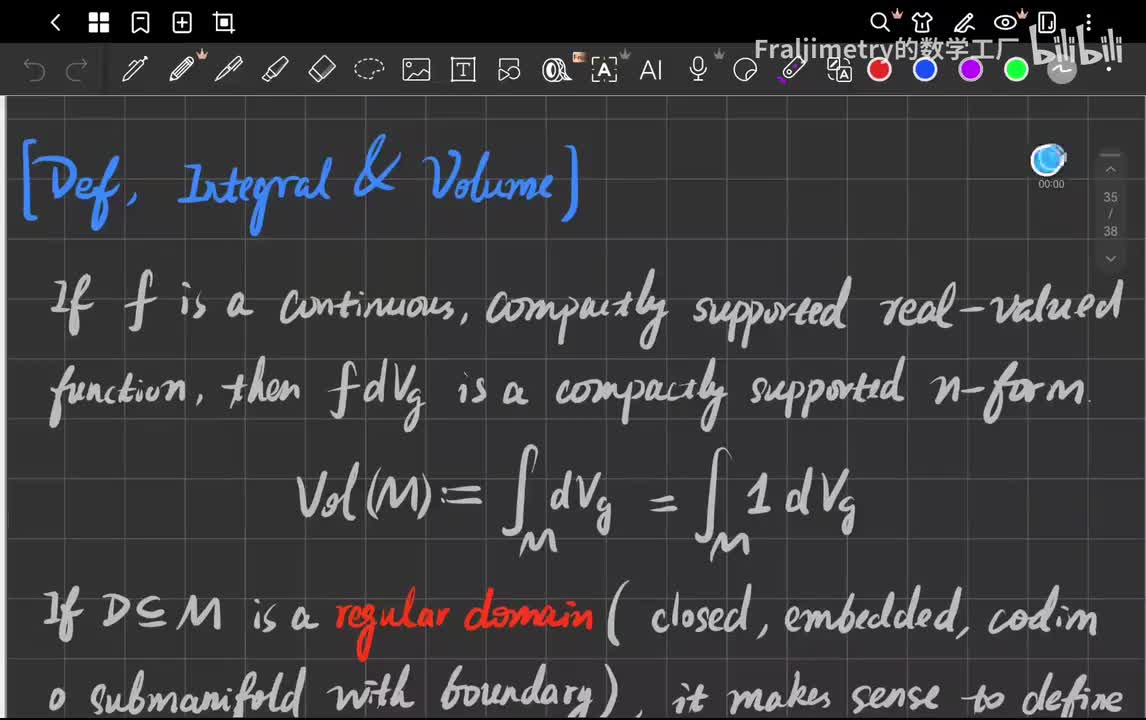 Fraljimetry的数学工厂 bilibili
Free
A
T
A
AI
A
00:00
35
/
38
[Def, Integral & Volume]
If f is a continuous, compactly supported real-valued
function, then f dVg is a compactly supported n-form.
Vol(M) := ∫_M dVg = ∫_M 1 dVg
If D ⊆ M is a regular domain ( closed, embedded, codim
0 submanifold with boundary), it makes sense to define